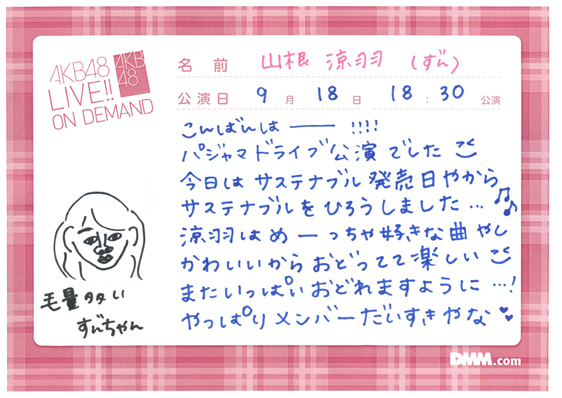 AKB48
LIVE!!
ON DEMAND
AKB
48
名前 山根 涼羽 (ずん)
公演日 9月18日 18:30公演
こんばんはーー !!!!
パジャマドライブ公演でした
今日はサステナブル発売日やから
サステナブルをひろうしました…♫♪
涼羽はめーっちゃ好きな曲やし
かわいいからおどってて楽しい
またいっぱいおどれますように…!
やっぱりメンバーだいすきやな
毛量多い
ずんちゃん
DMM.com